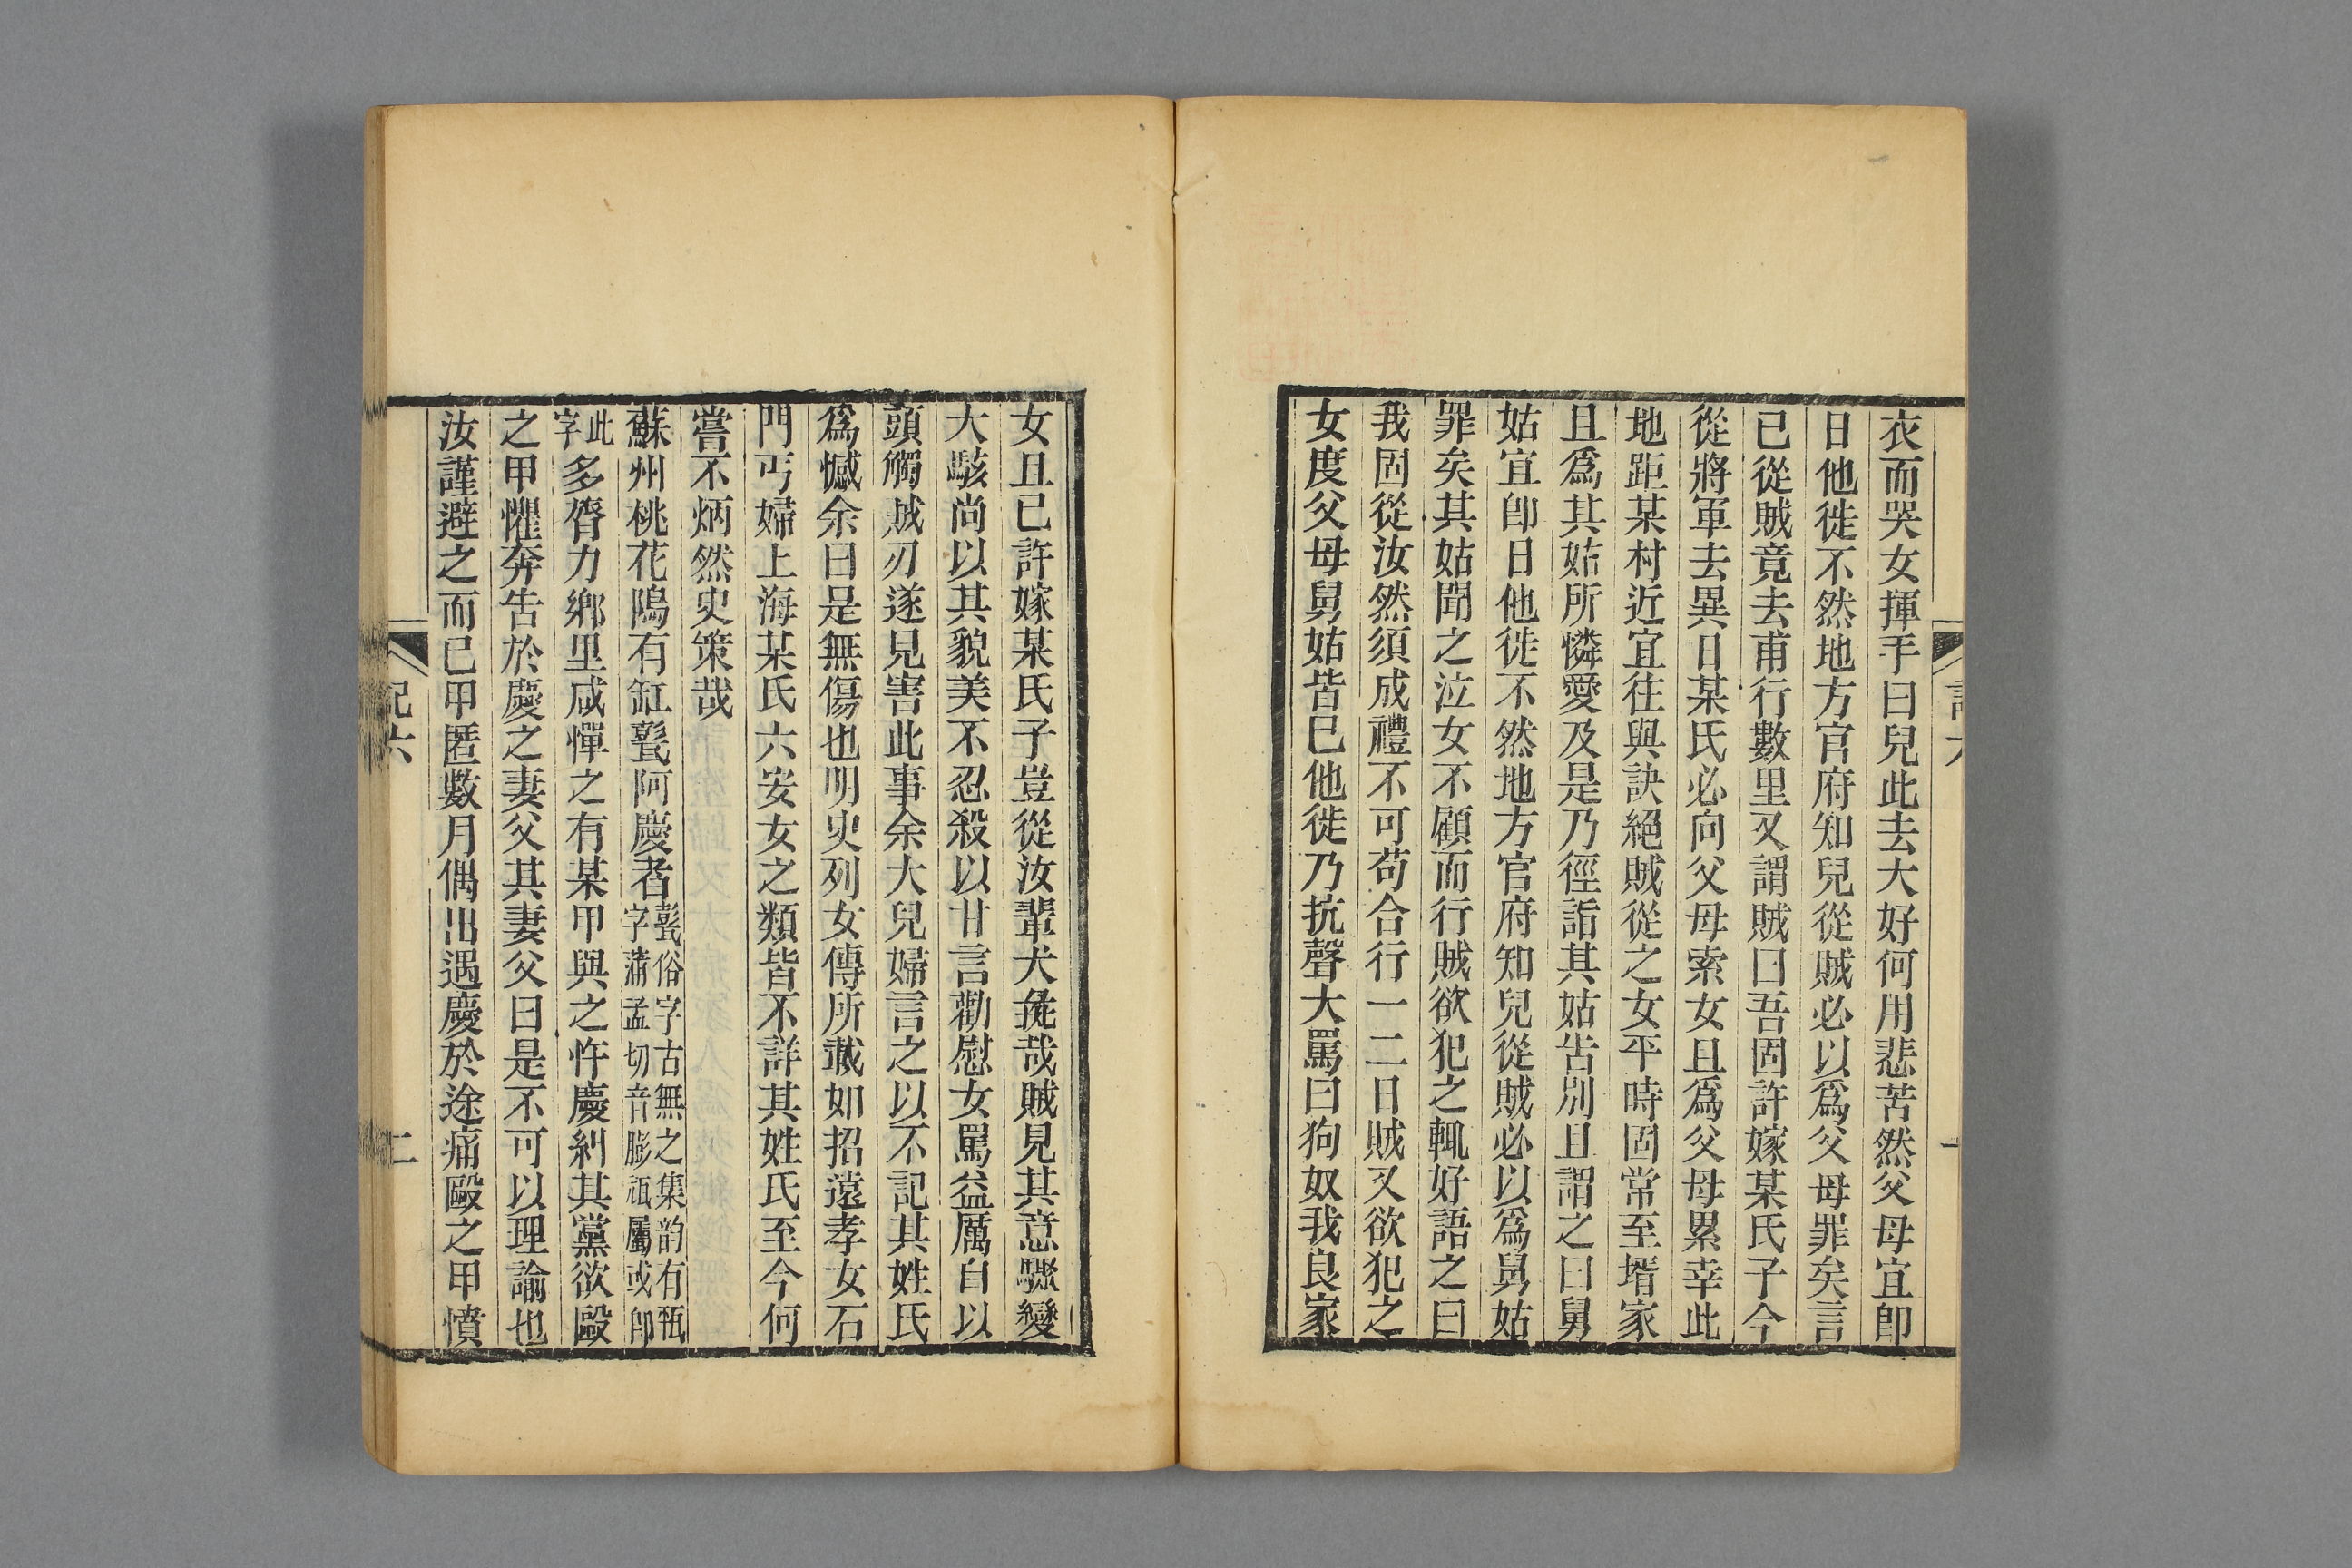 衣而哭女揮手曰兒此去大好何用悲苦然父母宜卽
日他徙不然地方官府知兒從賊必以爲父母罪矣言
已從賊竟去甫行數里又謂賊曰吾固許嫁某氏子今
從將軍去異日某氏必向父母索女且爲父母累幸此
地距某村近宜往與訣絕賊從之女平時固常至壻家
且爲其姑所憐愛及是乃徑詣其姑告別且謂之曰舅
姑宜卽日他徙不然地方官府知兒從賊必以爲舅姑
罪矣其姑聞之泣女不顧而行賊欲犯之輒好語之曰
我固從汝然須成禮不可苟合行一二日賊又欲犯之
女度父母舅姑皆已他徙乃抗聲大罵曰狗奴我良家
女且已許嫁某氏子豈從汝輩犬彘哉賊見其意驟變
大駭尚以其貌美不忍殺以甘言勸慰女罵益厲自以
頭觸賊刃遂見害此事余大兒婦言之以不記其姓氏
爲憾余曰是無傷也明史列女傳所載如招遠孝女石
門丐婦上海某氏六安女之類皆不詳其姓氏至今何
嘗不炳然史策哉
蘇州桃花隖有缸甏阿慶者甏俗字古無之集韵有㼸字蒲孟切音膨瓶屬或卽
此字多膂力鄉里咸憚之有某甲與之忤慶糾其黨欲毆
之甲懼奔告於慶之妻父其妻父曰是不可以理諭也
汝謹避之而已甲匿數月偶出遇慶於途痛毆之甲憤
記六
二